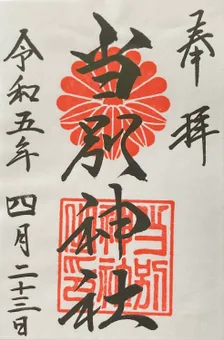 奉拝
当別神社
令和五年 四月二十三日